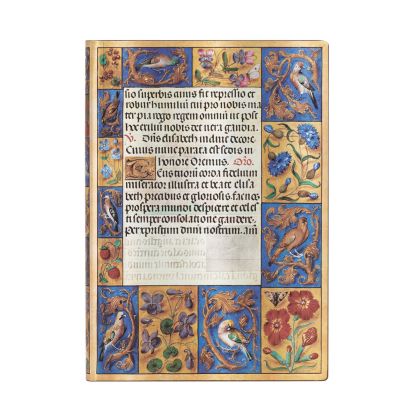 sio superbis amis fit repressio et
robur humiliū tu pro nobis ma
ter pia rego regem omniū ut post
hoc exiliū nobis det vera gaudia.
V. Dn̄s elisabeth induit decore
Cuius nunc parata est sedis in
honore Oremus. Oro.
Tuorum corda fidelium
miserator illustra et beate elisa
beth precibus et gloriosis. facnos
prospera mundi despicere et celes
ti semper consolatione gaudere.
Per xpristum dnn̄i nostrum. am̄